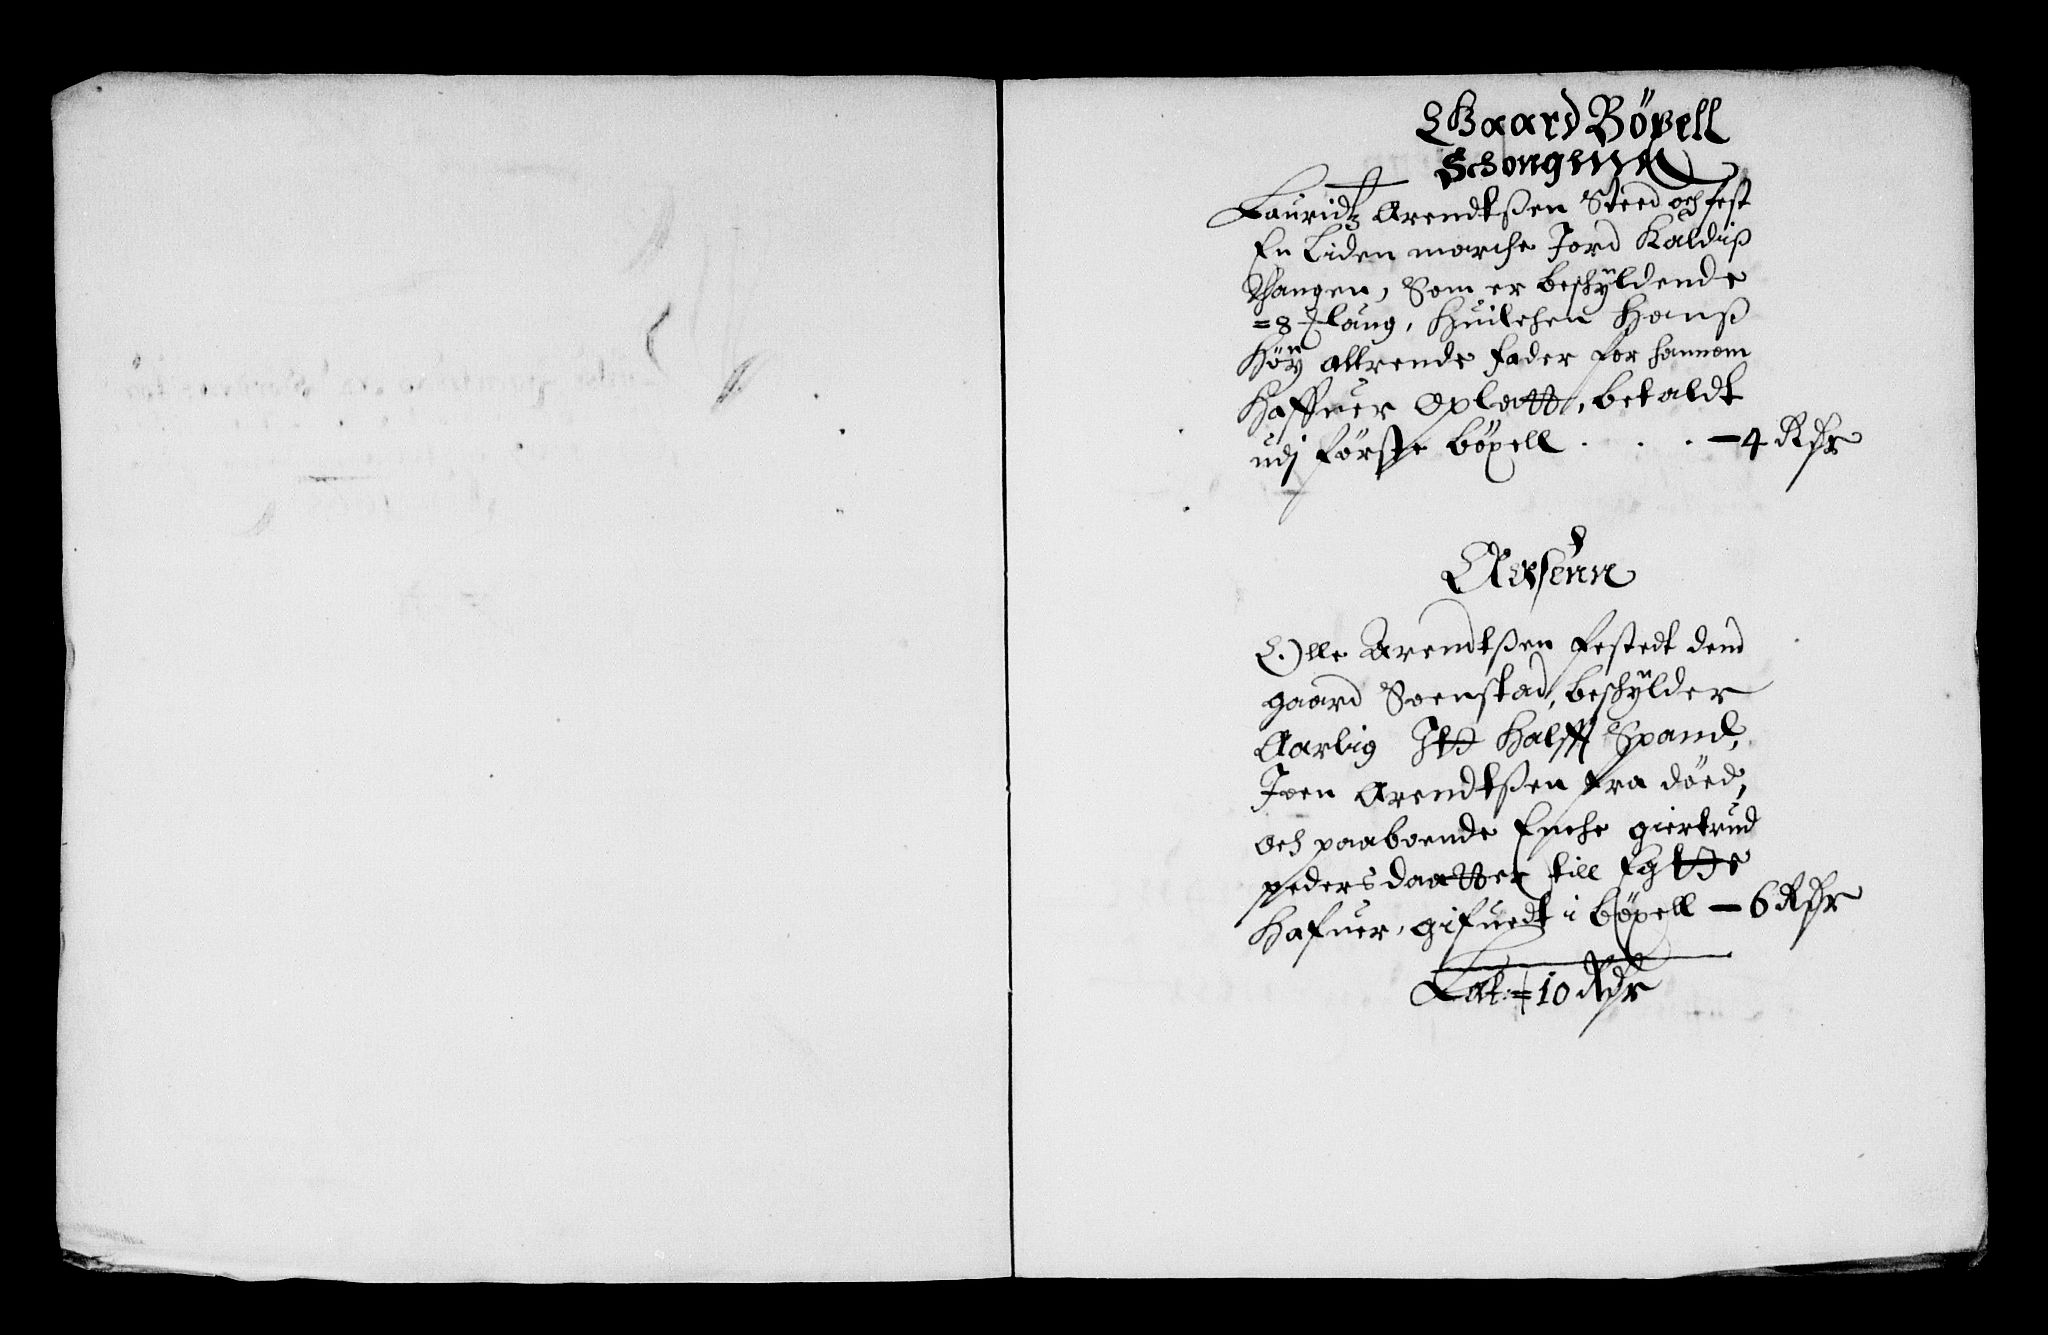 Gaard Böxell
Schongnn
Lauridtz Arendtßen Steed och fest
En Liden march Jord Kaldiß
Vangen, Som er beskÿldende
=8 laug, Huilchen Hanß
Höÿ attrende fader for hannom
Haffuer Oplatt, betaldt
udj Förste böxell . . . — 4 Rdr
Aasenn
Olle Arendtßen festedt dend
gaard Soenstad, beskÿlder
Aarlig Itt Halff Spand,
Joen Arendtßen fra döed,
och paaboende Enche giertrud
pedersdaatter till Egtte
Hafuer, gifuedt i böxell — 6 Rdr
Lat = 10 Rdr